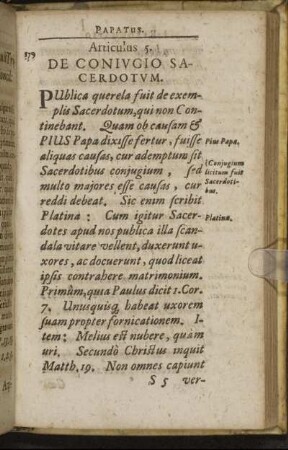 PAPATUS.
279
Articulus 5.
DE CONIVGIO SA-
CERDOTVM.
PUblica querela fuit de exem-
plis Sacerdotum, qui non Con-
tinebant. Quam ob causam &
PIUS Papa dixisse fertur, fuisse
aliquas causas, cur ademptum sit
Sacerdotibus conjugium, sed
multo majores esse causas, cur
reddi debeat. Sic enim scribit
Platina: Cum igitur Sacer-
dotes apud nos publica illa scan-
dala vitare vellent, duxerunt u-
xores, ac docuerunt, quod liceat
ipsis contrahere matrimonium.
Primùm, quia Paulus dicit 1. Cor.
7. Unusquisq; habeat uxorem
suam propter fornicationem. I-
tem: Melius est nubere, quàm
uri. Secundò Christus inquit
Matth. 19. Non omnes capiunt
S 5 ver-
Pius Papa.
Conjugium
licitum fuit
Sacerdoti-
bus.
Platina.